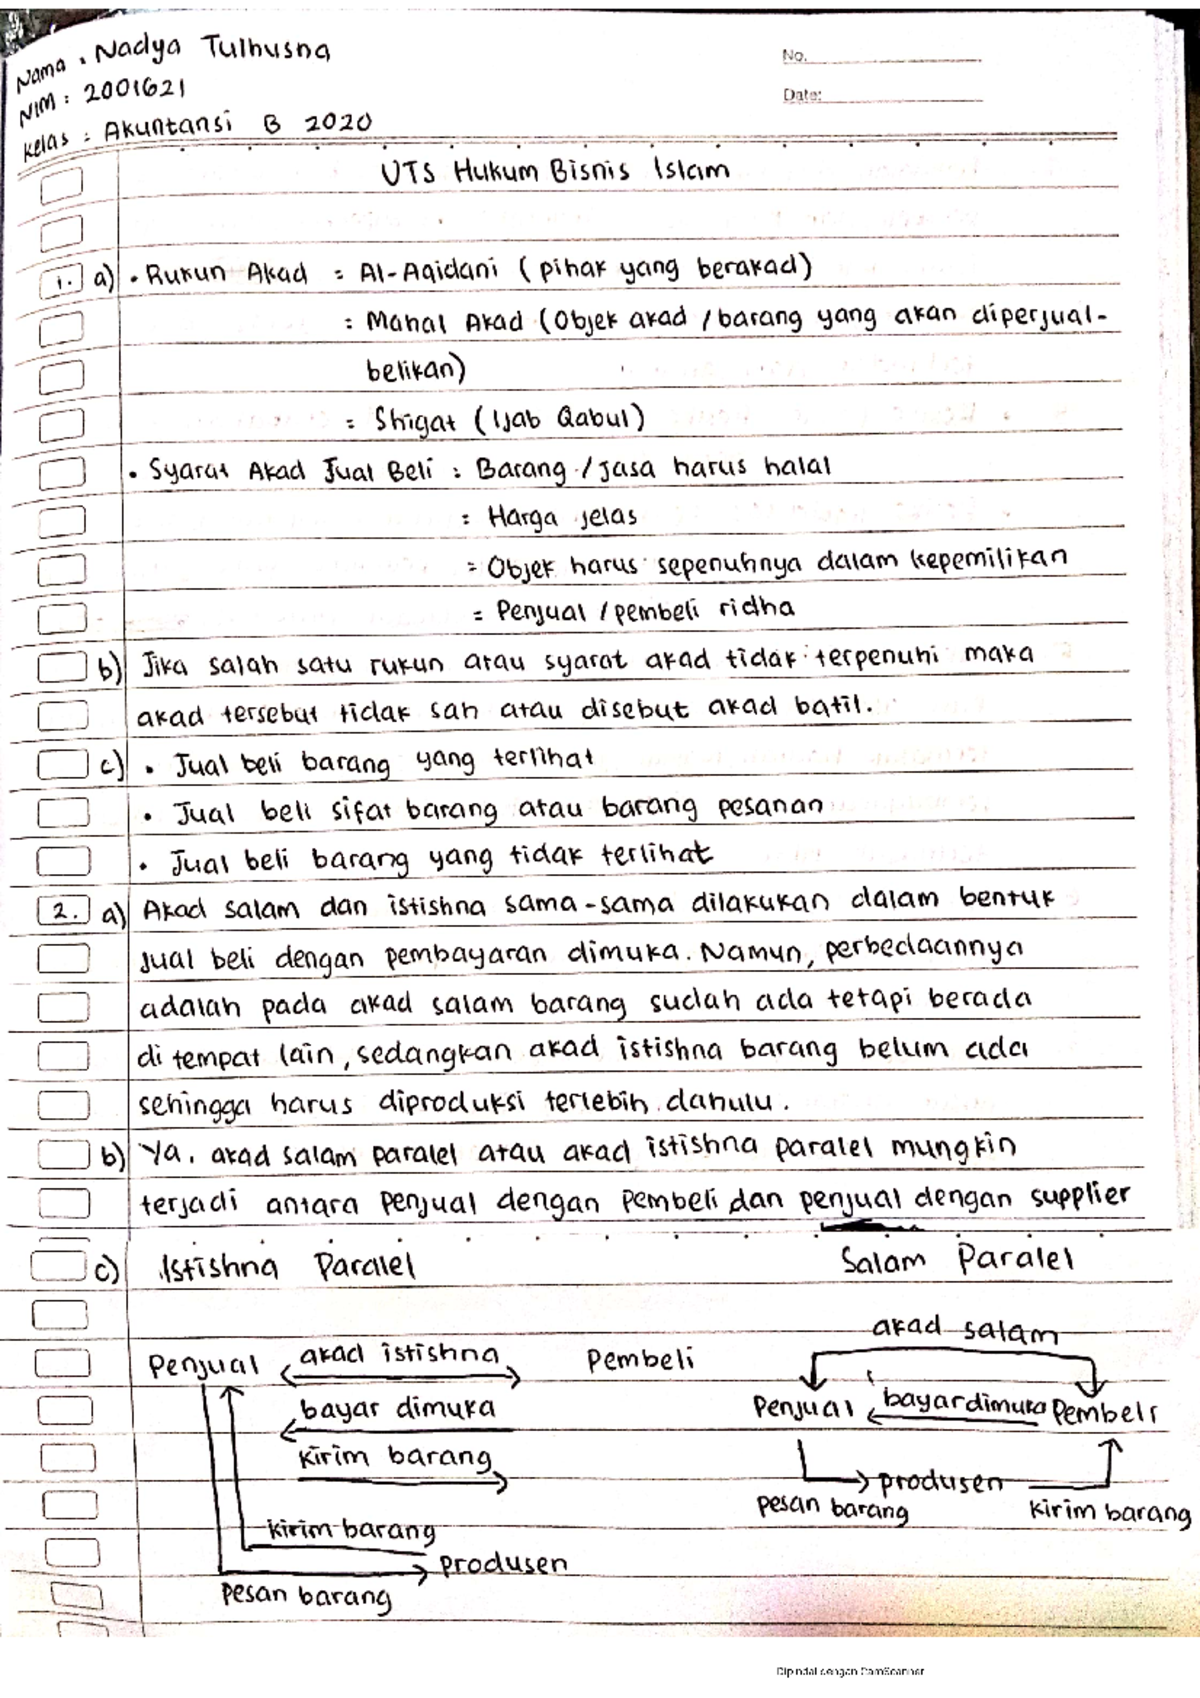 Nama : Nadya Tulhusna
NIM : 2001621
Kelas : Akuntansi B 2020
No.
Date:
UTS Hukum Bisnis Islam
1. a) • Rukun Akad = Al-Aqidani (pihak yang berakad)
= Mahal Akad (Objek akad / barang yang akan diperjual-
belikan)
= Shigat (Ijab Qabul)
• Syarat Akad Jual Beli : Barang / jasa harus halal
= Harga jelas
= Objek harus sepenuhnya dalam kepemilikan
= Penjual / pembeli ridha
b) Jika salah satu rukun atau syarat akad tidak terpenuhi maka
akad tersebut tidak sah atau disebut akad batil.
c) • Jual beli barang yang terlihat
• Jual beli sifat barang atau barang pesanan
• Jual beli barang yang tidak terlihat
2. a) Akad salam dan istishna sama-sama dilakukan dalam bentuk
jual beli dengan pembayaran dimuka. Namun, perbedaannya
adalah pada akad salam barang sudah ada tetapi berada
di tempat lain, sedangkan akad istishna barang belum ada
sehingga harus diproduksi terlebih dahulu.
b) Ya, akad salam paralel atau akad istishna paralel mungkin
terjadi antara penjual dengan pembeli dan penjual dengan supplier
c) Istishna Paralel
Penjual akad istishna Pembeli
bayar dimuka
kirim barang
kirim barang
produsen
pesan barang
Salam Paralel
akad salam
Penjual bayar dimuka Pembeli
produsen
pesan barang kirim barang
Dipindai dengan CamScanner